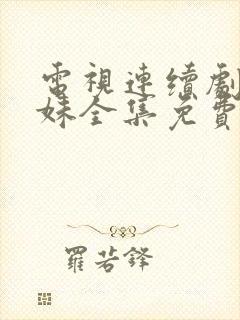 電視連續劇
妹全集免費
羅若鋒